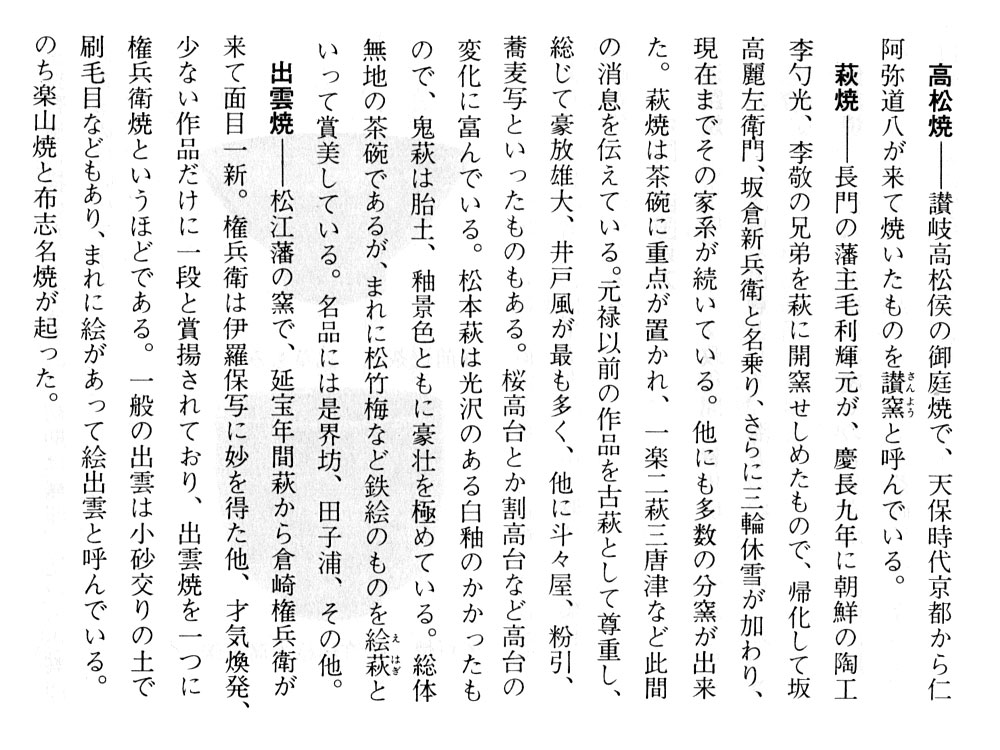 高松焼――讃岐高松侯の御庭焼で、天保時代京都から仁
阿弥道八が来て焼いたものを讃窯と呼んでいる。
萩焼――長門の藩主毛利輝元が、慶長九年に朝鮮の陶工
李勺光、李敬の兄弟を萩に開窯せしめたもので、帰化して坂
高麗左衛門、坂倉新兵衛と名乗り、さらに三輪休雪が加わり、
現在までその家系が続いている。他にも多数の分窯が出来
た。萩焼は茶碗に重点が置かれ、一楽二萩三唐津など此間
の消息を伝えている。元禄以前の作品を古萩として尊重し、
総じて豪放雄大、井戸風が最も多く、他に斗々屋、粉引、
蕎麦写といったものもある。桜高台とか割高台など高台の
変化に富んでいる。松本萩は光沢のある白釉のかかったも
ので、鬼萩は胎土、釉景色ともに豪壮を極めている。総体
無地の茶碗であるが、まれに松竹梅など鉄絵のものを絵萩と
いって賞美している。名品には是界坊、田子浦、その他。
出雲焼――松江藩の窯で、延宝年間萩から倉崎権兵衛が
来て面目一新。権兵衛は伊羅保写に妙を得た他、才気煥発、
少ない作品だけに一段と賞揚されており、出雲焼を一つに
権兵衛焼というほどである。一般の出雲は小砂交りの土で
刷毛目などもあり、まれに絵があって絵出雲と呼んでいる。
のち楽山焼と布志名焼が起った。